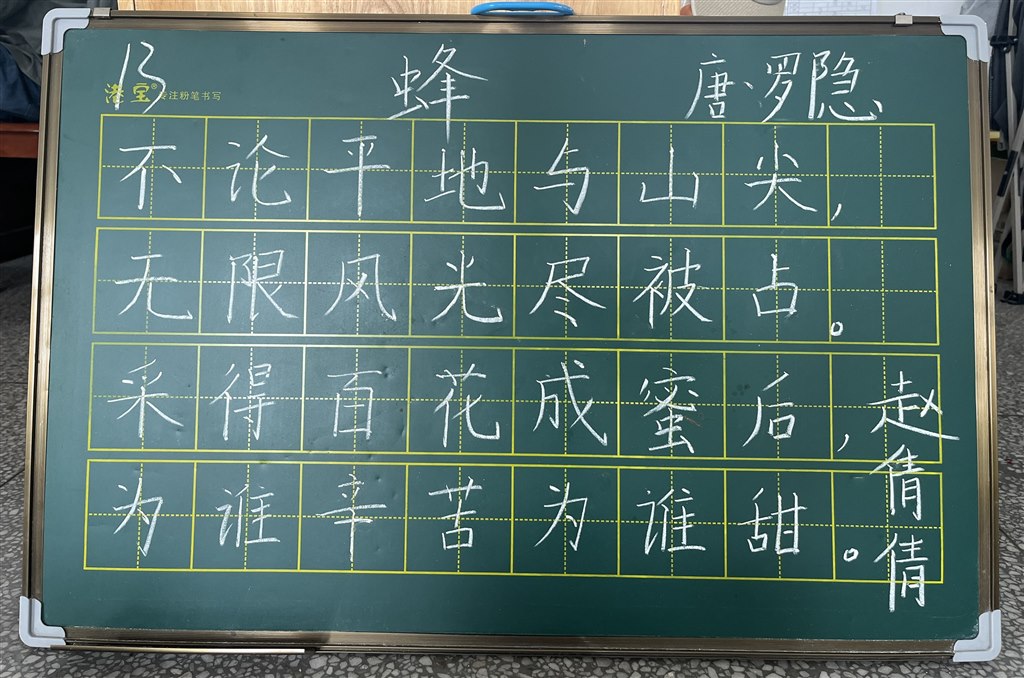 13 蜂 唐·罗隐
港宝® 专注粉笔书写
不论平地与山尖,
无限风光尽被占。
采得百花成蜜后,
为谁辛苦为谁甜。
赵倩倩